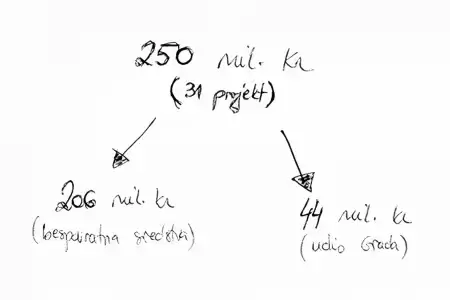 250 mil. kn
(31 projekt)
206 mil. kn
(bespovratna sredstva)
44 mil. kn
(udio Grada)